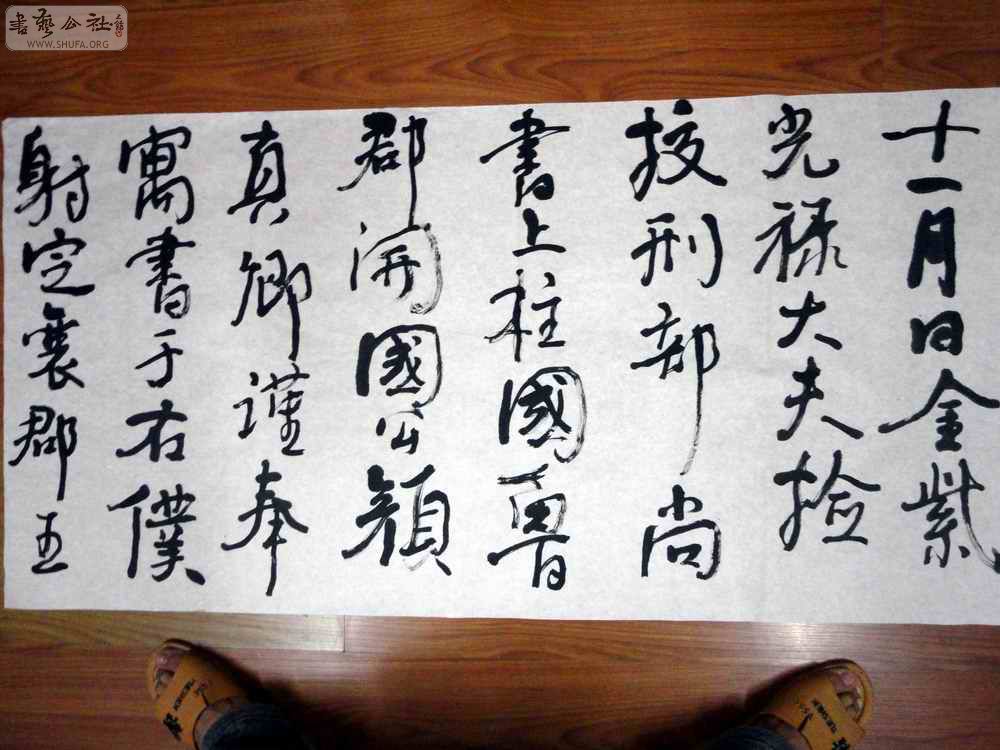 十一月日金紫
光禄大夫捡
挍刑部尚
書上柱國魯
郡開國公顔
真卿謹奉
寓書于右僕
射定襄郡王
書藝公社
WWW.SHUFA.ORG